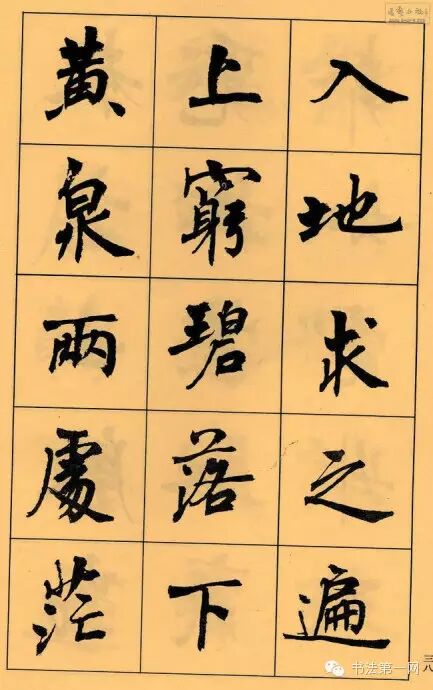 入地求之遍
上窮碧落下
黃泉兩處茫
三八
书法第一网